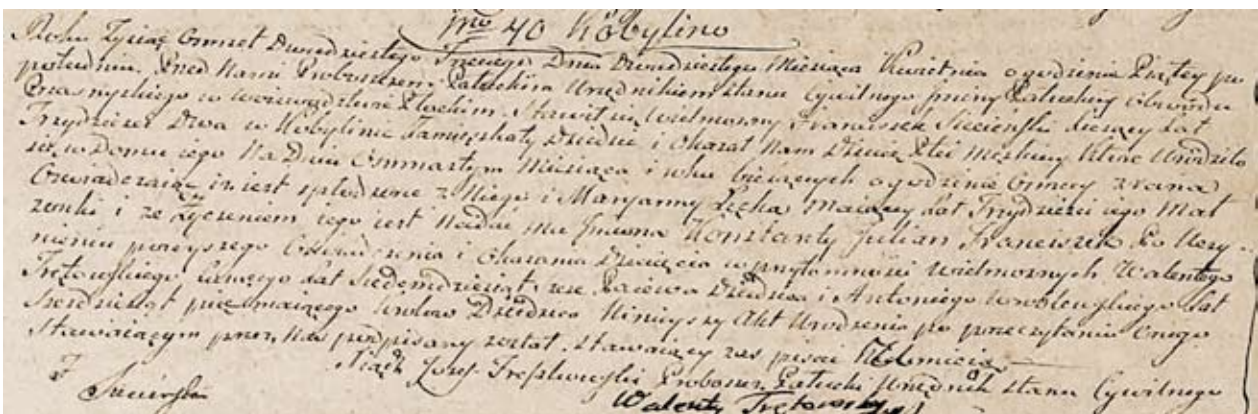 Nro 40 Kobylino
Roku Tysiąc Osmset Dwudziestego Trzeciego Dnia Dwudziestego Miesiąca Kwietnia o godzinie Piątey po
południu. Przed Nami Proboszczem Pałuckim Urzędnikiem stanu Cywilnego Gminy Pałuckiey obwodu
Prasnyskiego w woiewództwie Płockim. Stawił się Wielmożny Franciszek liczący Lat
Trzydzieści Dwa w Kobylinie Zamięszkały Dziedzic i okazał Nam Dziecię Płci męskiey które Urodziło
się w Domu iego Na Dniu Osmnastym Miesiąca i roku bieżących o godzinie Osmey z rana
Oswiadczaiąc iż iest spłodzone z Niego i Maryanny maiącey Lat Trzydzieści iego Mał
zonki i że Życzeniem iego iest Nadać Mu Imiona Konstanty Julian Franciszek Po Uczy
nieniu powyższego Oswiadczenia i Okazania Dziecięcia w przytomności Wielmożnych Walentego
liczącego lat Siedemdziesiąt Dziedzica i Antoniego lat
pięć maiącego Dziedzica Ninieyszy Akt Urodzenia po przeczytaniu Onego
Stawaiącym przez Nas podpisany został. Stawaiący zas pisać Umieią
Xiądz Józef Proboszcz Pałucki Urzędnik stanu Cywilnego
Walenty